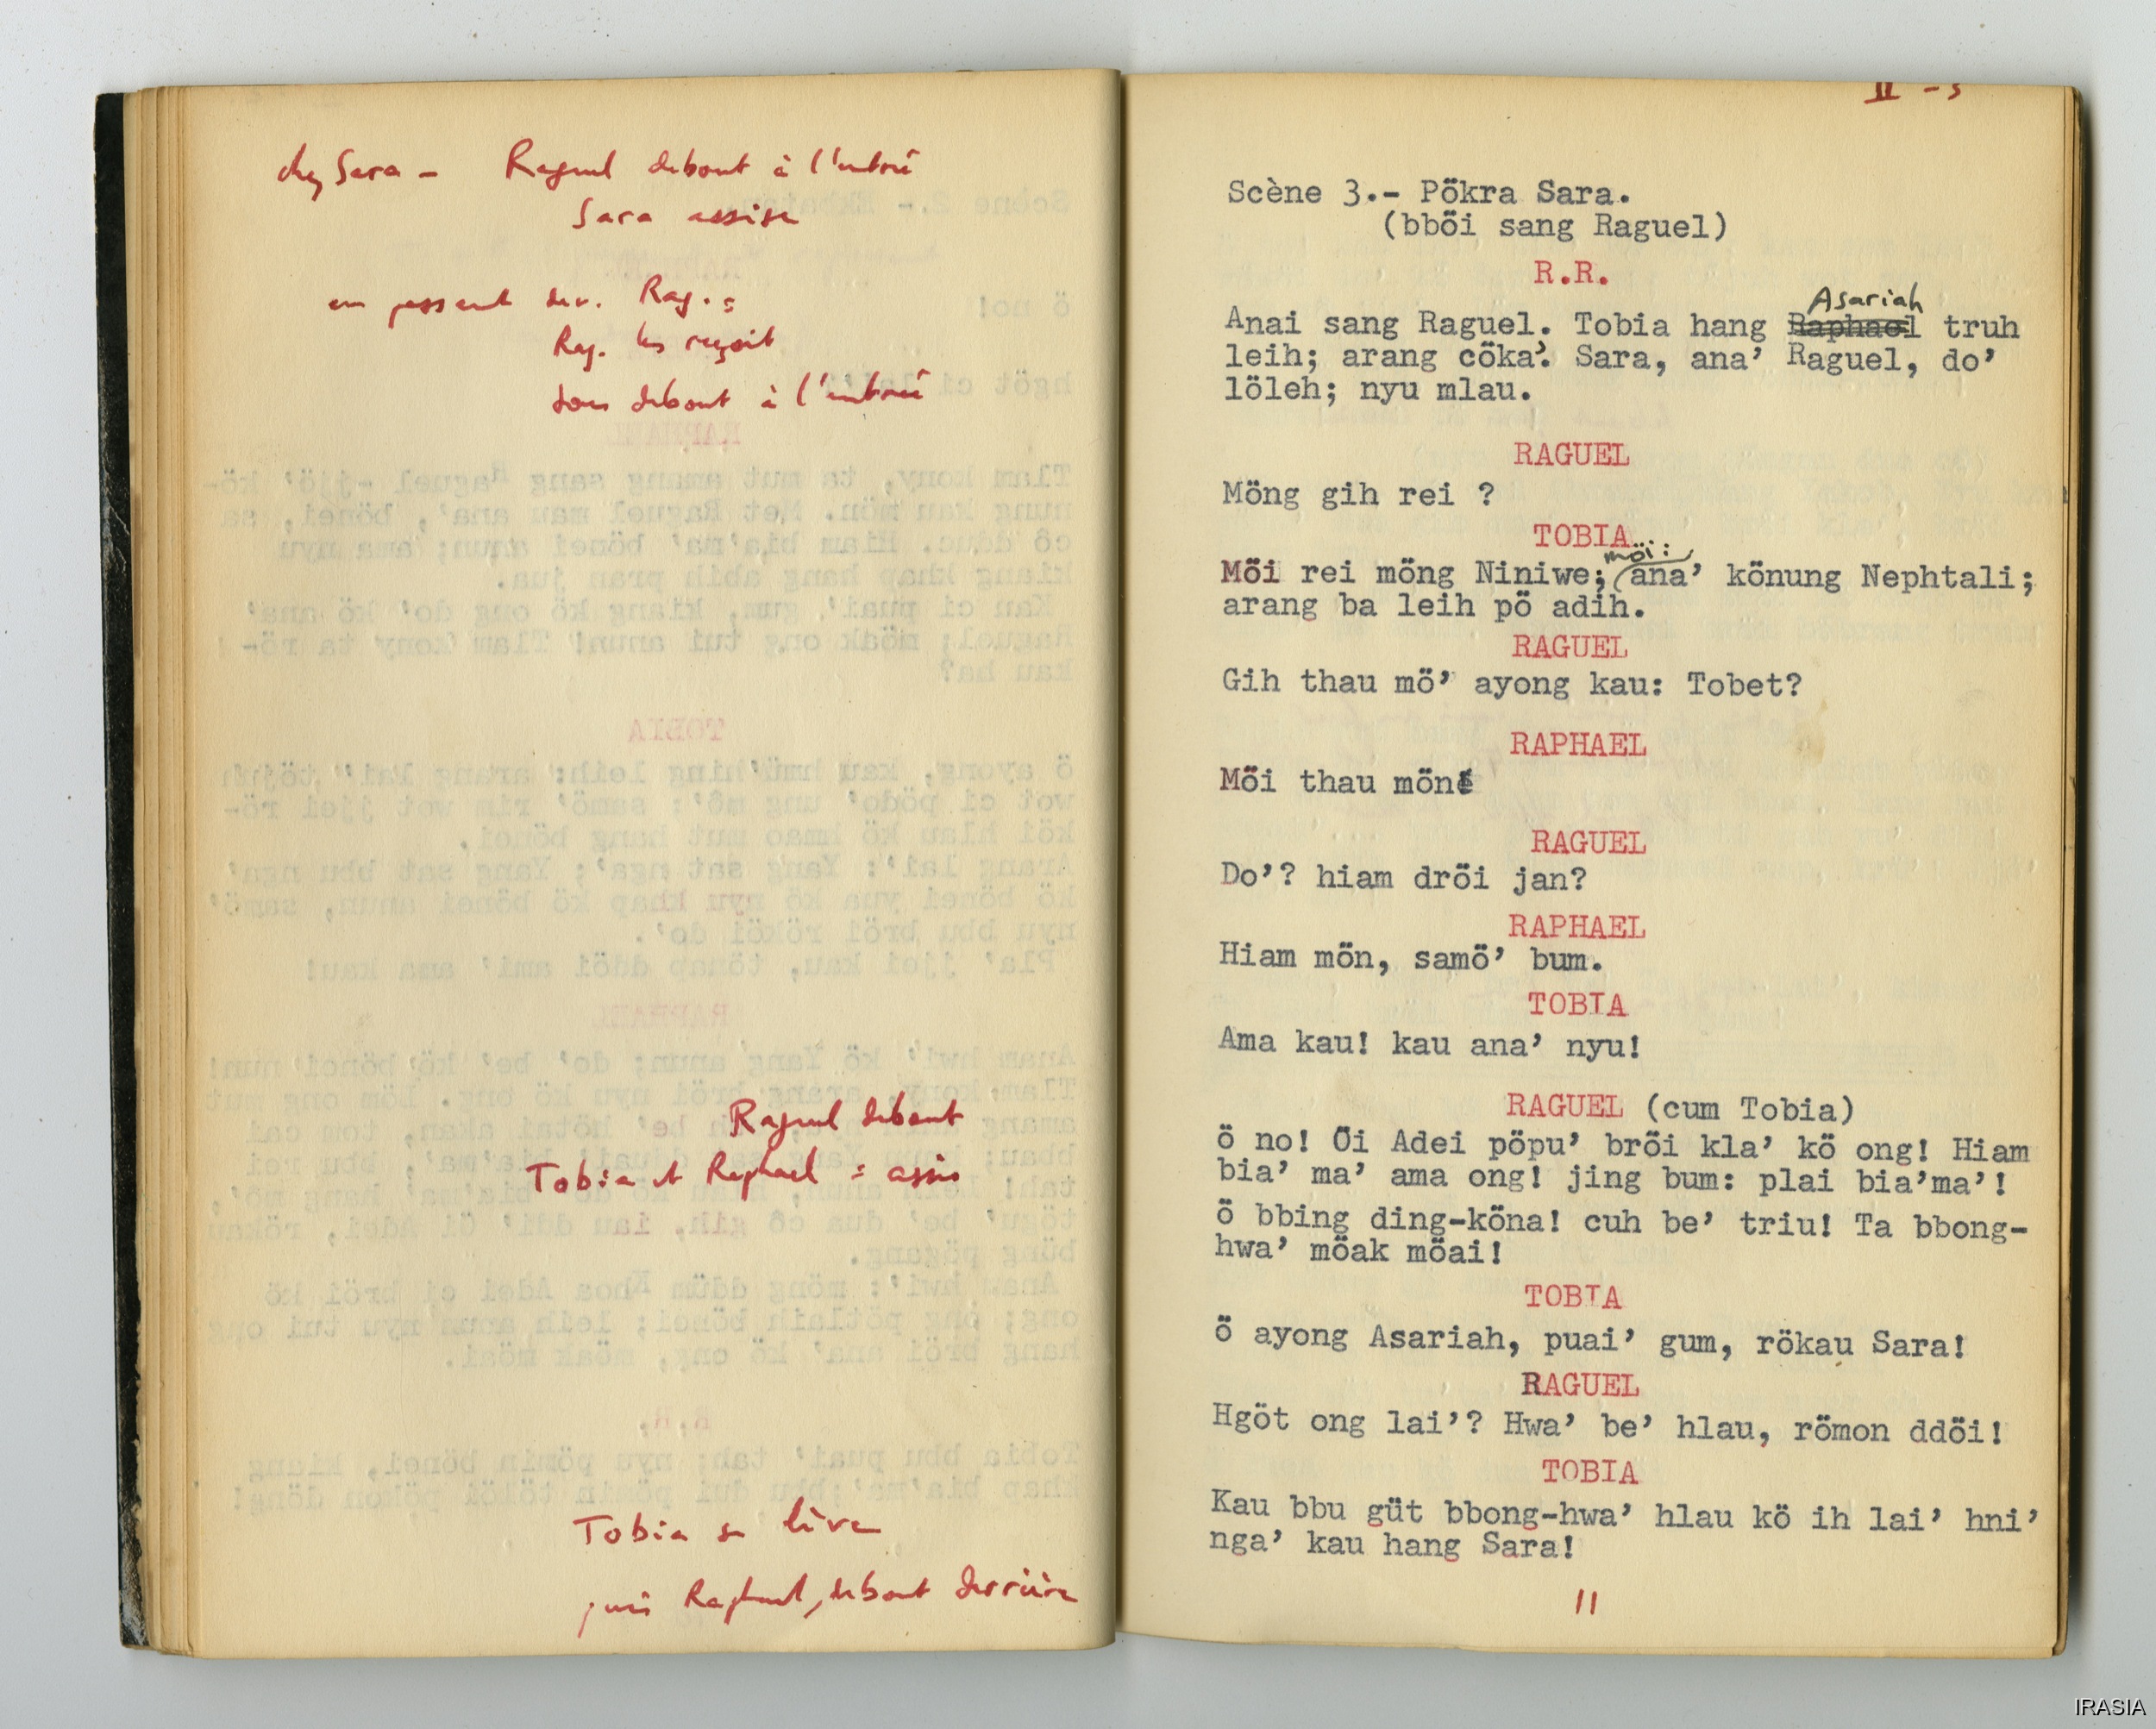 chez Sara - Raguel debout à l'entrée
Sara assise
en passant dev. Rag. =
Rag. les reçoit
tous debout à l'entrée
Raguel debout
Tobia et Raphael = assis
Tobia se lève
puis Raphael, debout derrière
II - 3
Scène 3.- Pökra Sara.
(bbơ̆i sang Raguel)
R.R.
Asariah
Anai sang Raguel. Tobia hang Raphael truh
leih; arang cơ̆ka'. Sara, ana' Raguel, do'
löleh; nyu mlau.
RAGUEL
Möng gih rei ?
TOBIA
möi:
Mơ̆i rei möng Niniwe; ana' könung Nephtali;
arang ba leih pö adih.
RAGUEL
Gih thau mö' ayong kau: Tobet?
RAPHAEL
Mơ̆i thau mön
RAGUEL
Do'? hiam drơ̆i jan?
RAPHAEL
Hiam mơ̆n, samö' bum.
TOBIA
Ama kau! kau ana' nyu!
RAGUEL (cum Tobia)
ơ̆ no! Ơ̆i Adei pöpu' brơ̆i kla' kö ong! Hiam
bia' ma' ama ong! jing bum: plai bia'ma'!
ơ̆ bbing ding-köna! cuh be' triu! Ta bbong-
hwa' mơ̆ak mơ̆ai!
TOBIA
ơ̆ ayong Asariah, puai' gum, rökau Sara!
RAGUEL
Hgöt ong lai'? Hwa' be' hlau, römon ddơ̆i!
TOBIA
Kau bbu güt bbong-hwa' hlau kö ih lai' hni'
nga' kau hang Sara!
11
IRASIA